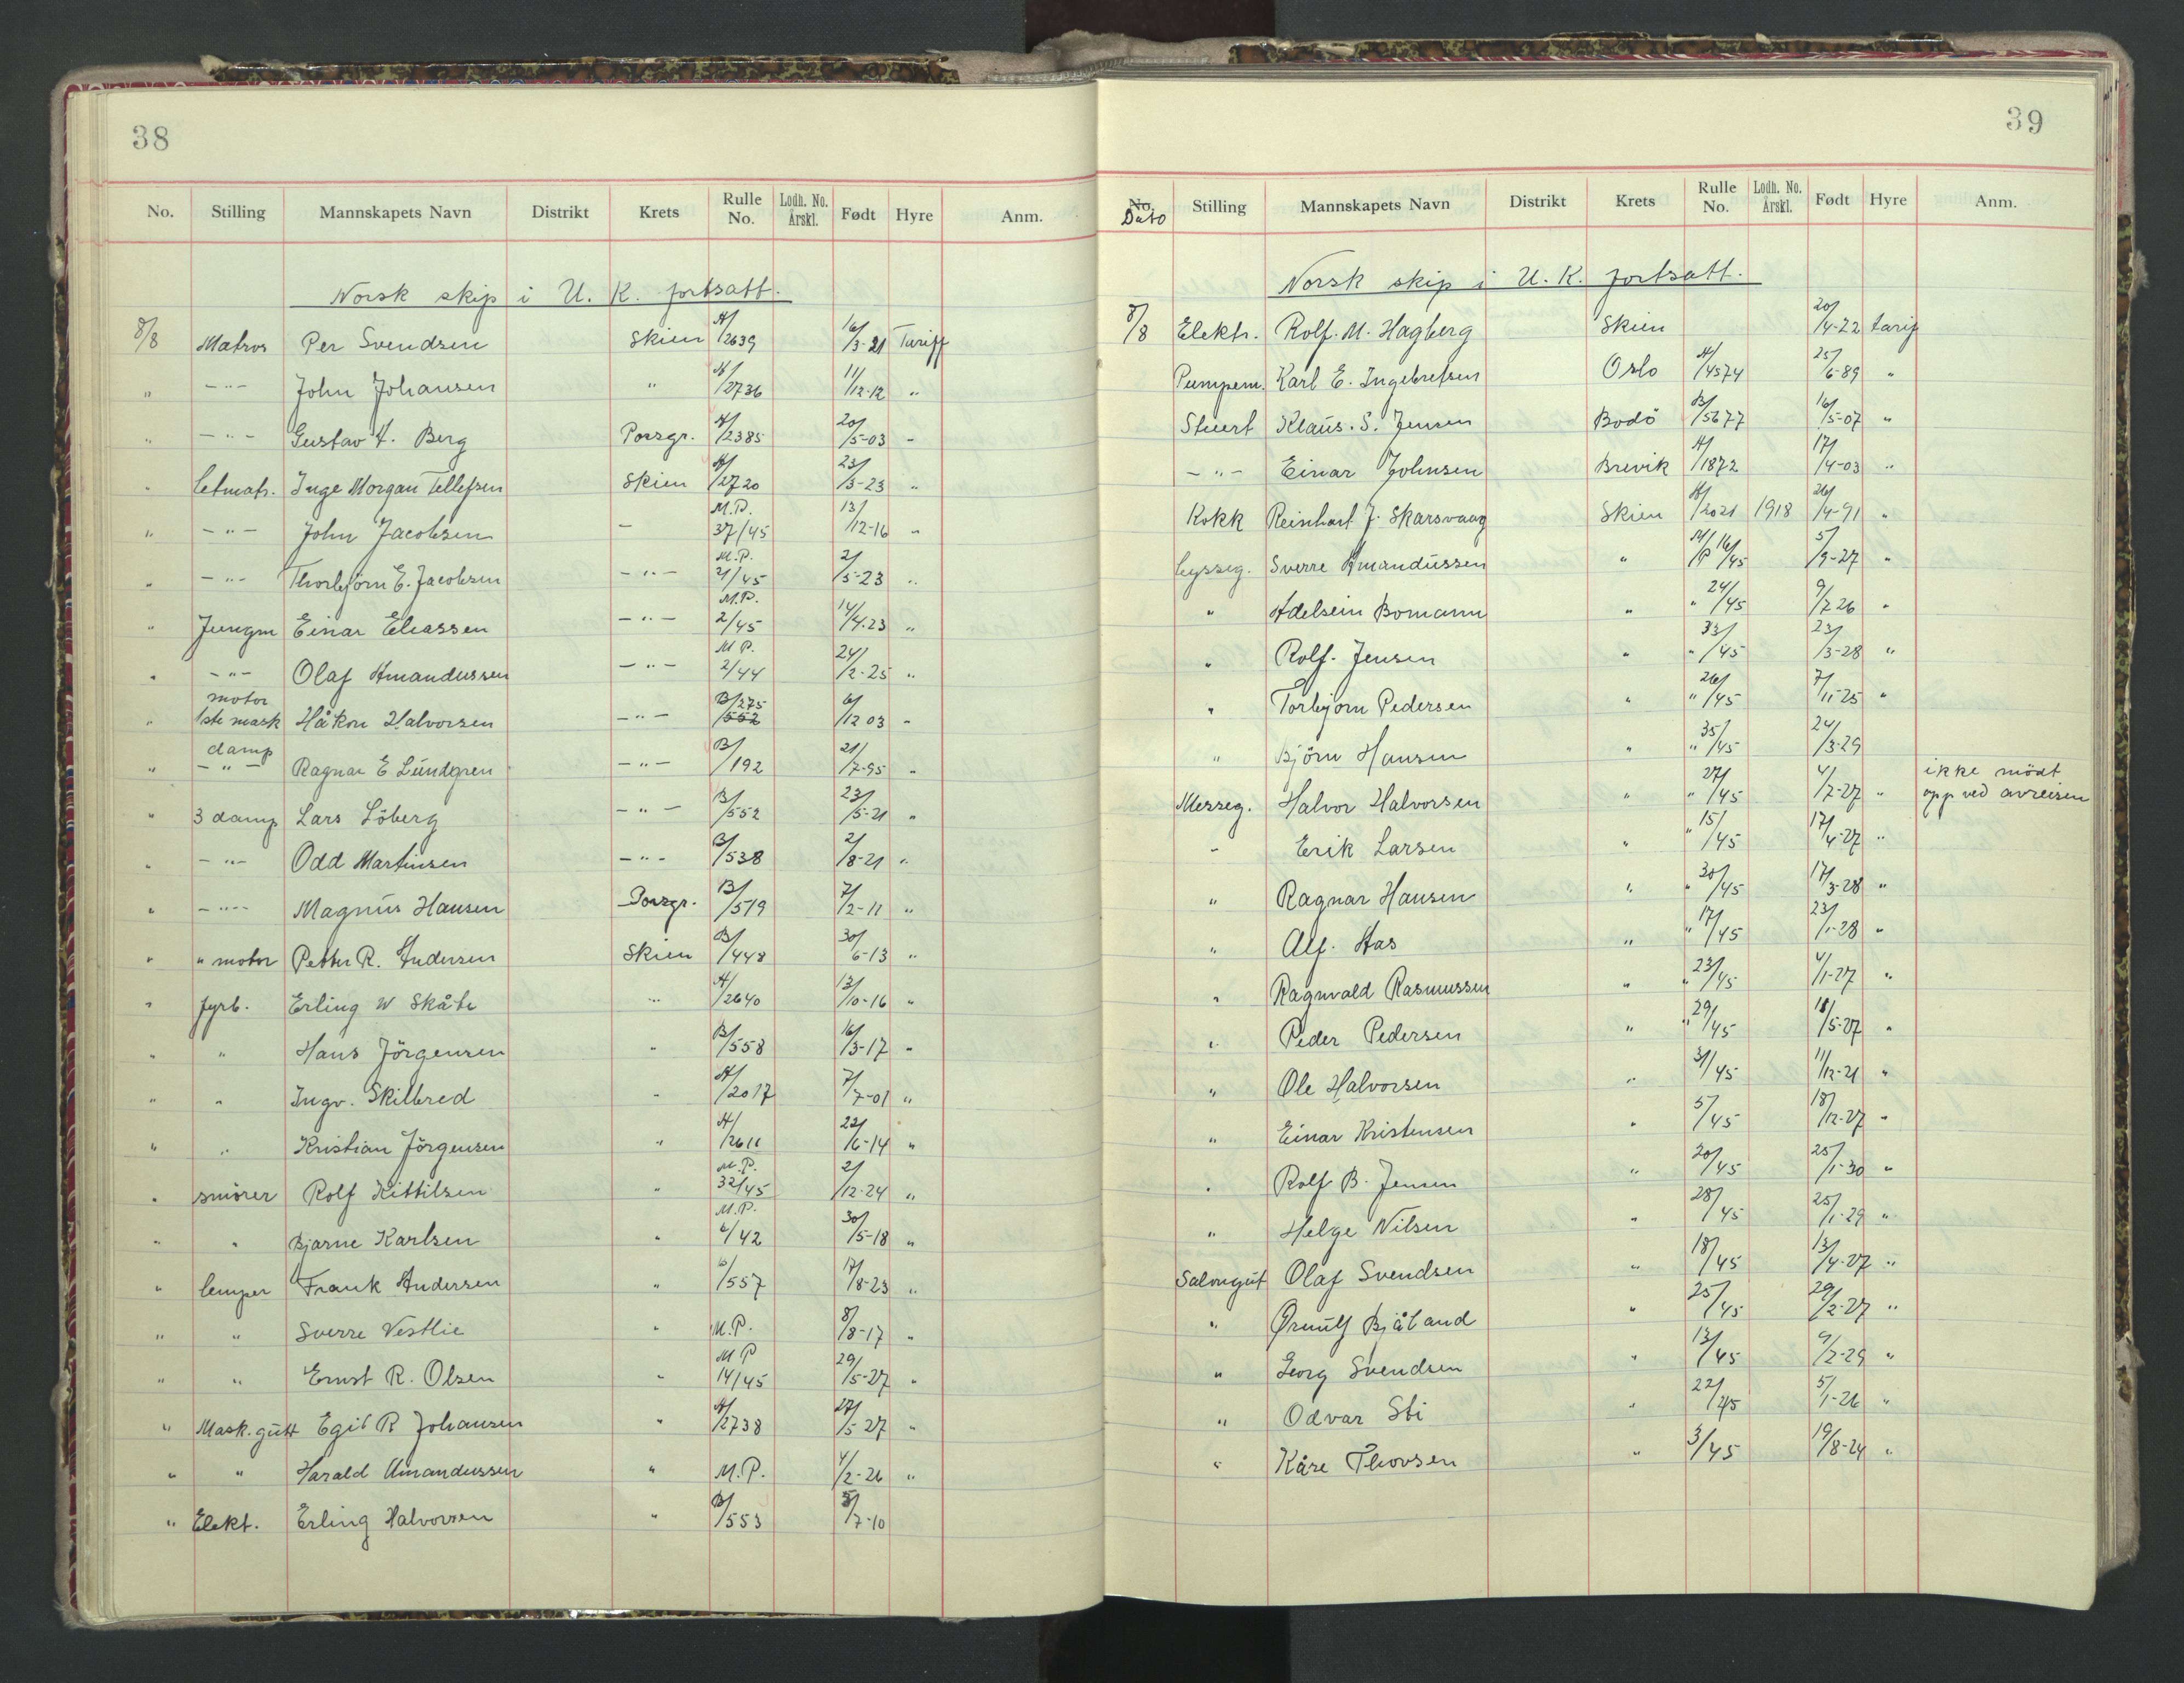 38
No. Stilling Mannskapets Navn Distrikt Krets Rulle No. Lodh. No. Årskl. Født Hyre Anm.
Norsk skip i U. K. fortsatt.
8/8 Matros Per Svendsen Skien A/2639 16/3-21 Tariff
" — " — John Johansen " A/2736 11/12-12 "
" — " — Gustav A. Berg Porsgr. A/2385 20/5-03 "
" Letmatr. Inge Morgan Tellefsen Skien A/2720 23/3-23 "
" — " — John Jacobsen — M.P. 37/45 13/12-16 "
" — " — Thorbjörn E. Jacobsen — " — M.P. 21/45 2/5-23 "
" Jungm Einar Eliassen — " — M.P. 2/45 14/4.23 "
" — " — Olaf Amandussen — " — M P. 2/44 24/2-25 "
" motor 1ste mask Håkon Halvorsen — " — B/275 /552 6/12 03 "
" damp — " — Ragnar E Lundgren — " — B/192 21/7-95 "
" 3 damp Lars Löberg — " — B/552 23/5-21 "
" — " — Odd Martinsen — " — B/538 2/8-21 "
" — " — Magnus Hansen Porsgr. B/519 7/2-11 "
" " motor Petter R. Andersen Skien B/448 30/6-13 "
" fyrb. Erling W Skåte " A/2640 13/10-16 "
" " Hans Jörgensen " B/558 16/3-17 "
" " Ingv. Skilbred " A/2017 7/7-01 "
" " Kristian Jörgensen " A/2611 22/6-14 "
" smörer Rolf Kittilsen " M.P. 32/45 2/12-24 "
" " Bjarne Karlsen " M.P. 6/42 30/5-18 "
" lemper Frank Andersen " /557 17/8-23 "
" " Sverre Vestlie " M.P. 8/8-17 "
" " Ernst R. Olsen " M P 14/45 29/5-27 "
" Mask.gutt Egil R Johansen " A/2738 27/5 27 "
" " Harald Amandussen " M.P. 4/2-26 "
" Elekt. Erling Halvorsen " B/553 /7-10
39
No. Dato Stilling Mannskapets Navn Distrikt Krets Rulle No. Lodh. No. Årskl. Født Hyre Anm.
Norsk skip i U. K. fortsatt.
8/8 Elektr. Rolf. M. Hagberg Skien 20/4-22 tarif
Pumpem. Karl E. Ingebretsen Oslo A/4574 25/6-89 "
Stuert Klaus. S. Jensen Bodö B/5677 16/5-07 "
— " — Einar Johnsen Brevik A/1872 17/4-03 "
Kokk Reinhart J. Skarsvaag Skien A/2021 1918 26/4-91 "
Bysseg. Sverre Amandussen " M/P 16/45 5/9-27 "
" Adelsein Bomann " " 24/45 9/7 26 "
" Rolf. Jensen " " 33/45 23/3-28 "
" Torbjorn Pedersen " " 26/45 7/11-25 "
" Björn Hansen " " 35/45 24/3-29
Messeg. Halvor Halvorsen " " 27/45 4/7-27 " ikke mödt
opp ved avreisen
" Erik Larsen " " 15/45 17/4-27 "
" Ragnar Hansen " " 30/45 17/3-28 "
" Alf. Aas " " 17/45 23/1-28 "
" Ragnvald Rasmussen " " 23/45 4/1-27 "
" Peder Pedersen " " 29/45 18/5-27 "
" Ole Halvorsen " 31/45 11/12-21 "
" Einar Kristensen " 5/45 18/12-27 "
" Rolf B. Jensen " 20/45 25/1-30 "
" Helge Nilsen " 28/45 25/1-29 "
Salongut Olaf Svendsen " 18/45 13/4-27 "
" Ørnulf Bjåland " 25/45 29/2-27 "
" Georg Svendsen " 13/45 9/2-29 "
" Odvar Sti " 22/45 5/1-26 "
" Kåre Thovsen " 3/45 19/8-24 "